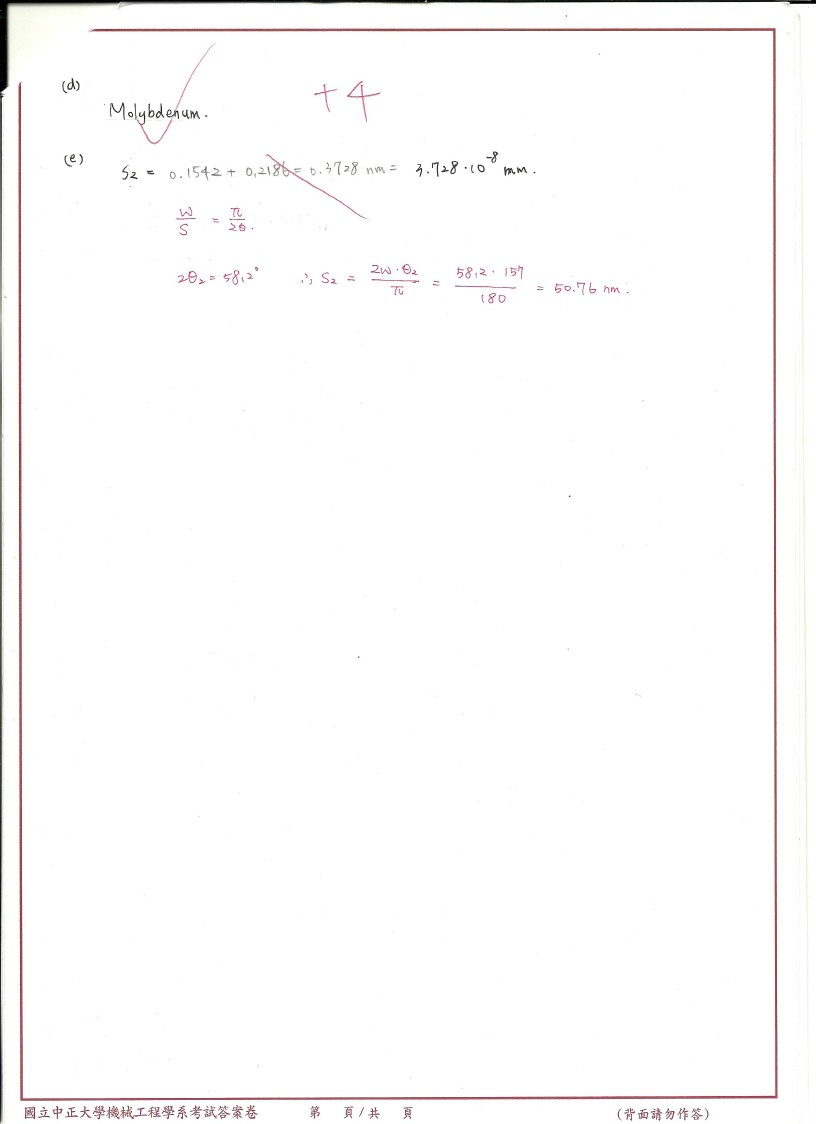 (d)
+4
Molybdenum.
(e)
S₂ = 0.1542 + 0.2186 = 0.3728 nm = 3.728·10⁻⁸ mm.
W/S = π/2θ.
2θ₂ = 58.2° ∴ S₂ = 2W·θ₂/π = 58.2·157/180 = 50.76 nm.
國立中正大學機械工程學系考試答案卷 第 頁/共 頁 (背面請勿作答)